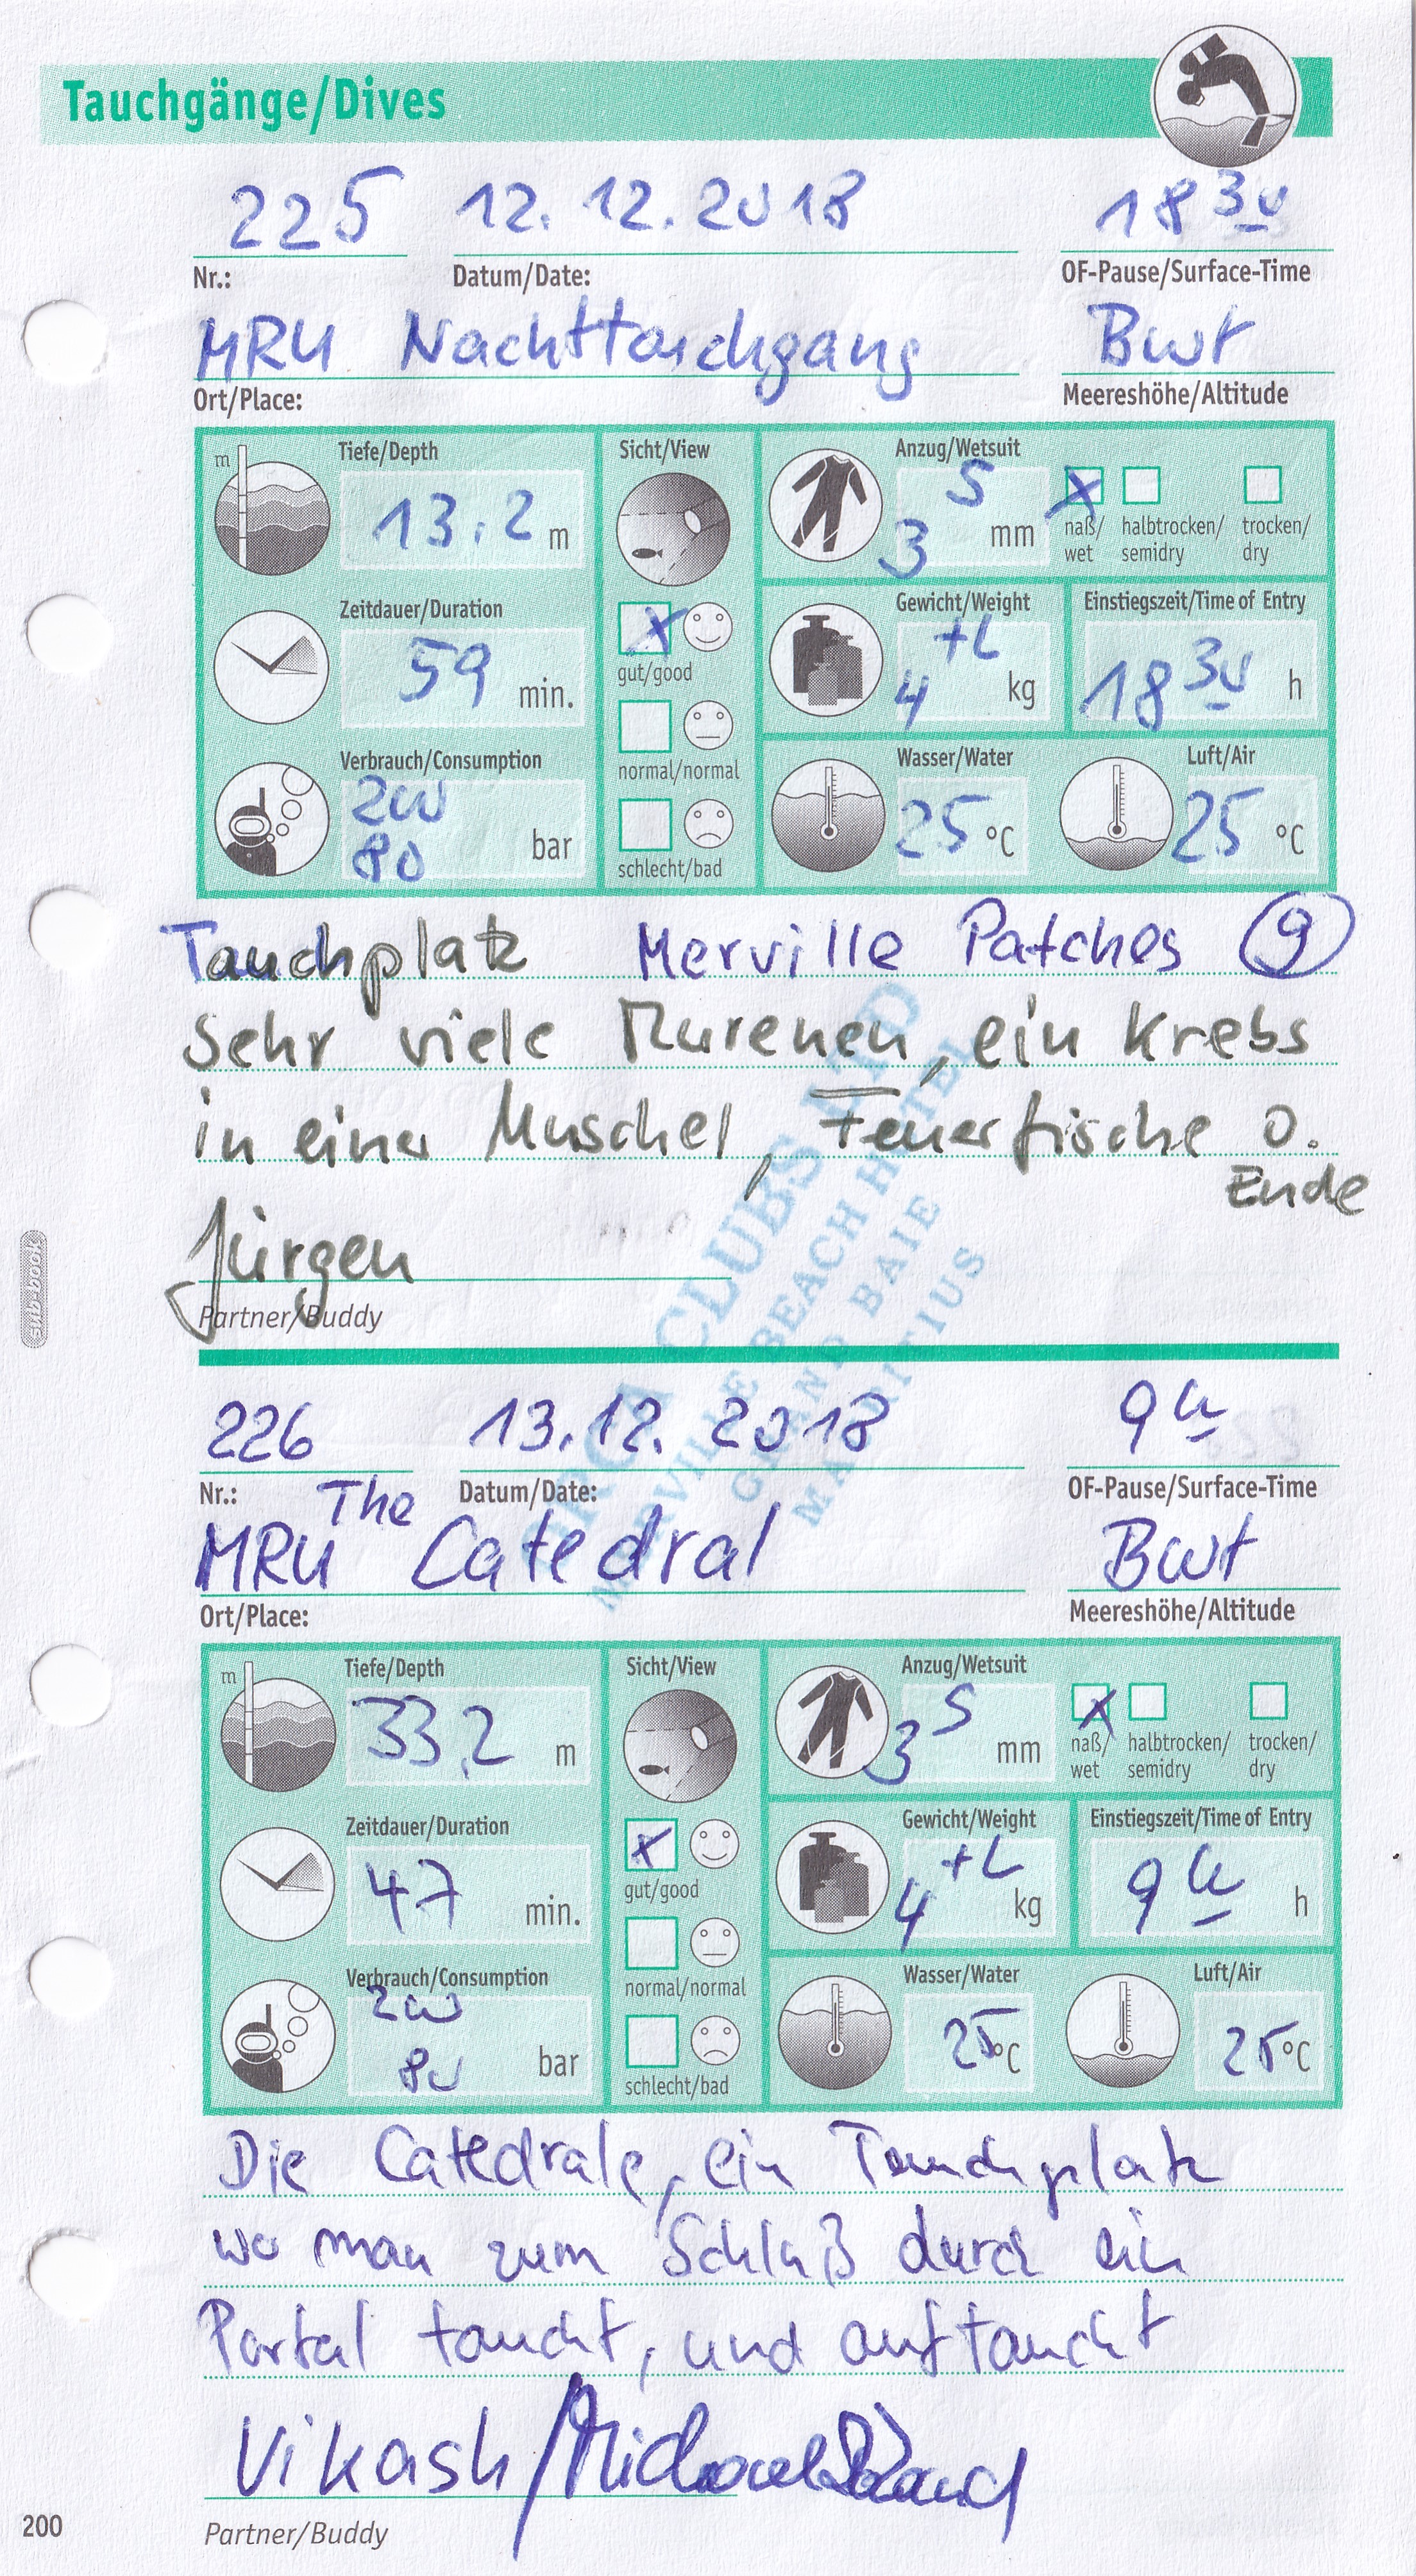 Tauchgänge/Dives
225 12.12.2018 18 30
Nr.: Datum/Date: OF-Pause/Surface-Time
MRU Nachttauchgang Bwt
Ort/Place: Meereshöhe/Altitude
m Tiefe/Depth Sicht/View Anzug/Wetsuit
13,2 m 3 5 mm X naß/wet halbtrocken/semidry trocken/dry
Zeitdauer/Duration Gewicht/Weight Einstiegszeit/Time of Entry
59 min. X gut/good 4 +L kg 18 30 h
normal/normal
Verbrauch/Consumption Wasser/Water Luft/Air
200
80 bar schlecht/bad 25 °C 25 °C
Tauchplatz Merville Patches 9
Sehr viele Murenen, ein Krebs
in einer Muschel, Feuerfische o.
Ende
Jürgen
Partner/Buddy
ORCA CLUBS LTD
MERVILLE BEACH HOTEL
GRAND BAIE
MAURITIUS
226 13.12.2018 9
Nr.: Datum/Date: OF-Pause/Surface-Time
The
MRU Catedral Bwt
Ort/Place: Meereshöhe/Altitude
m Tiefe/Depth Sicht/View Anzug/Wetsuit
33,2 m 3 5 mm X naß/wet halbtrocken/semidry trocken/dry
Zeitdauer/Duration Gewicht/Weight Einstiegszeit/Time of Entry
47 min. X gut/good 4 +L kg 9 h
normal/normal
Verbrauch/Consumption Wasser/Water Luft/Air
200
80 bar schlecht/bad 25 °C 25 °C
Die Catedrale, ein Tauchplatz
wo man zum Schluß durch ein
Portal taucht, und auftaucht
Vikash/Michael
Partner/Buddy
sub-book
200